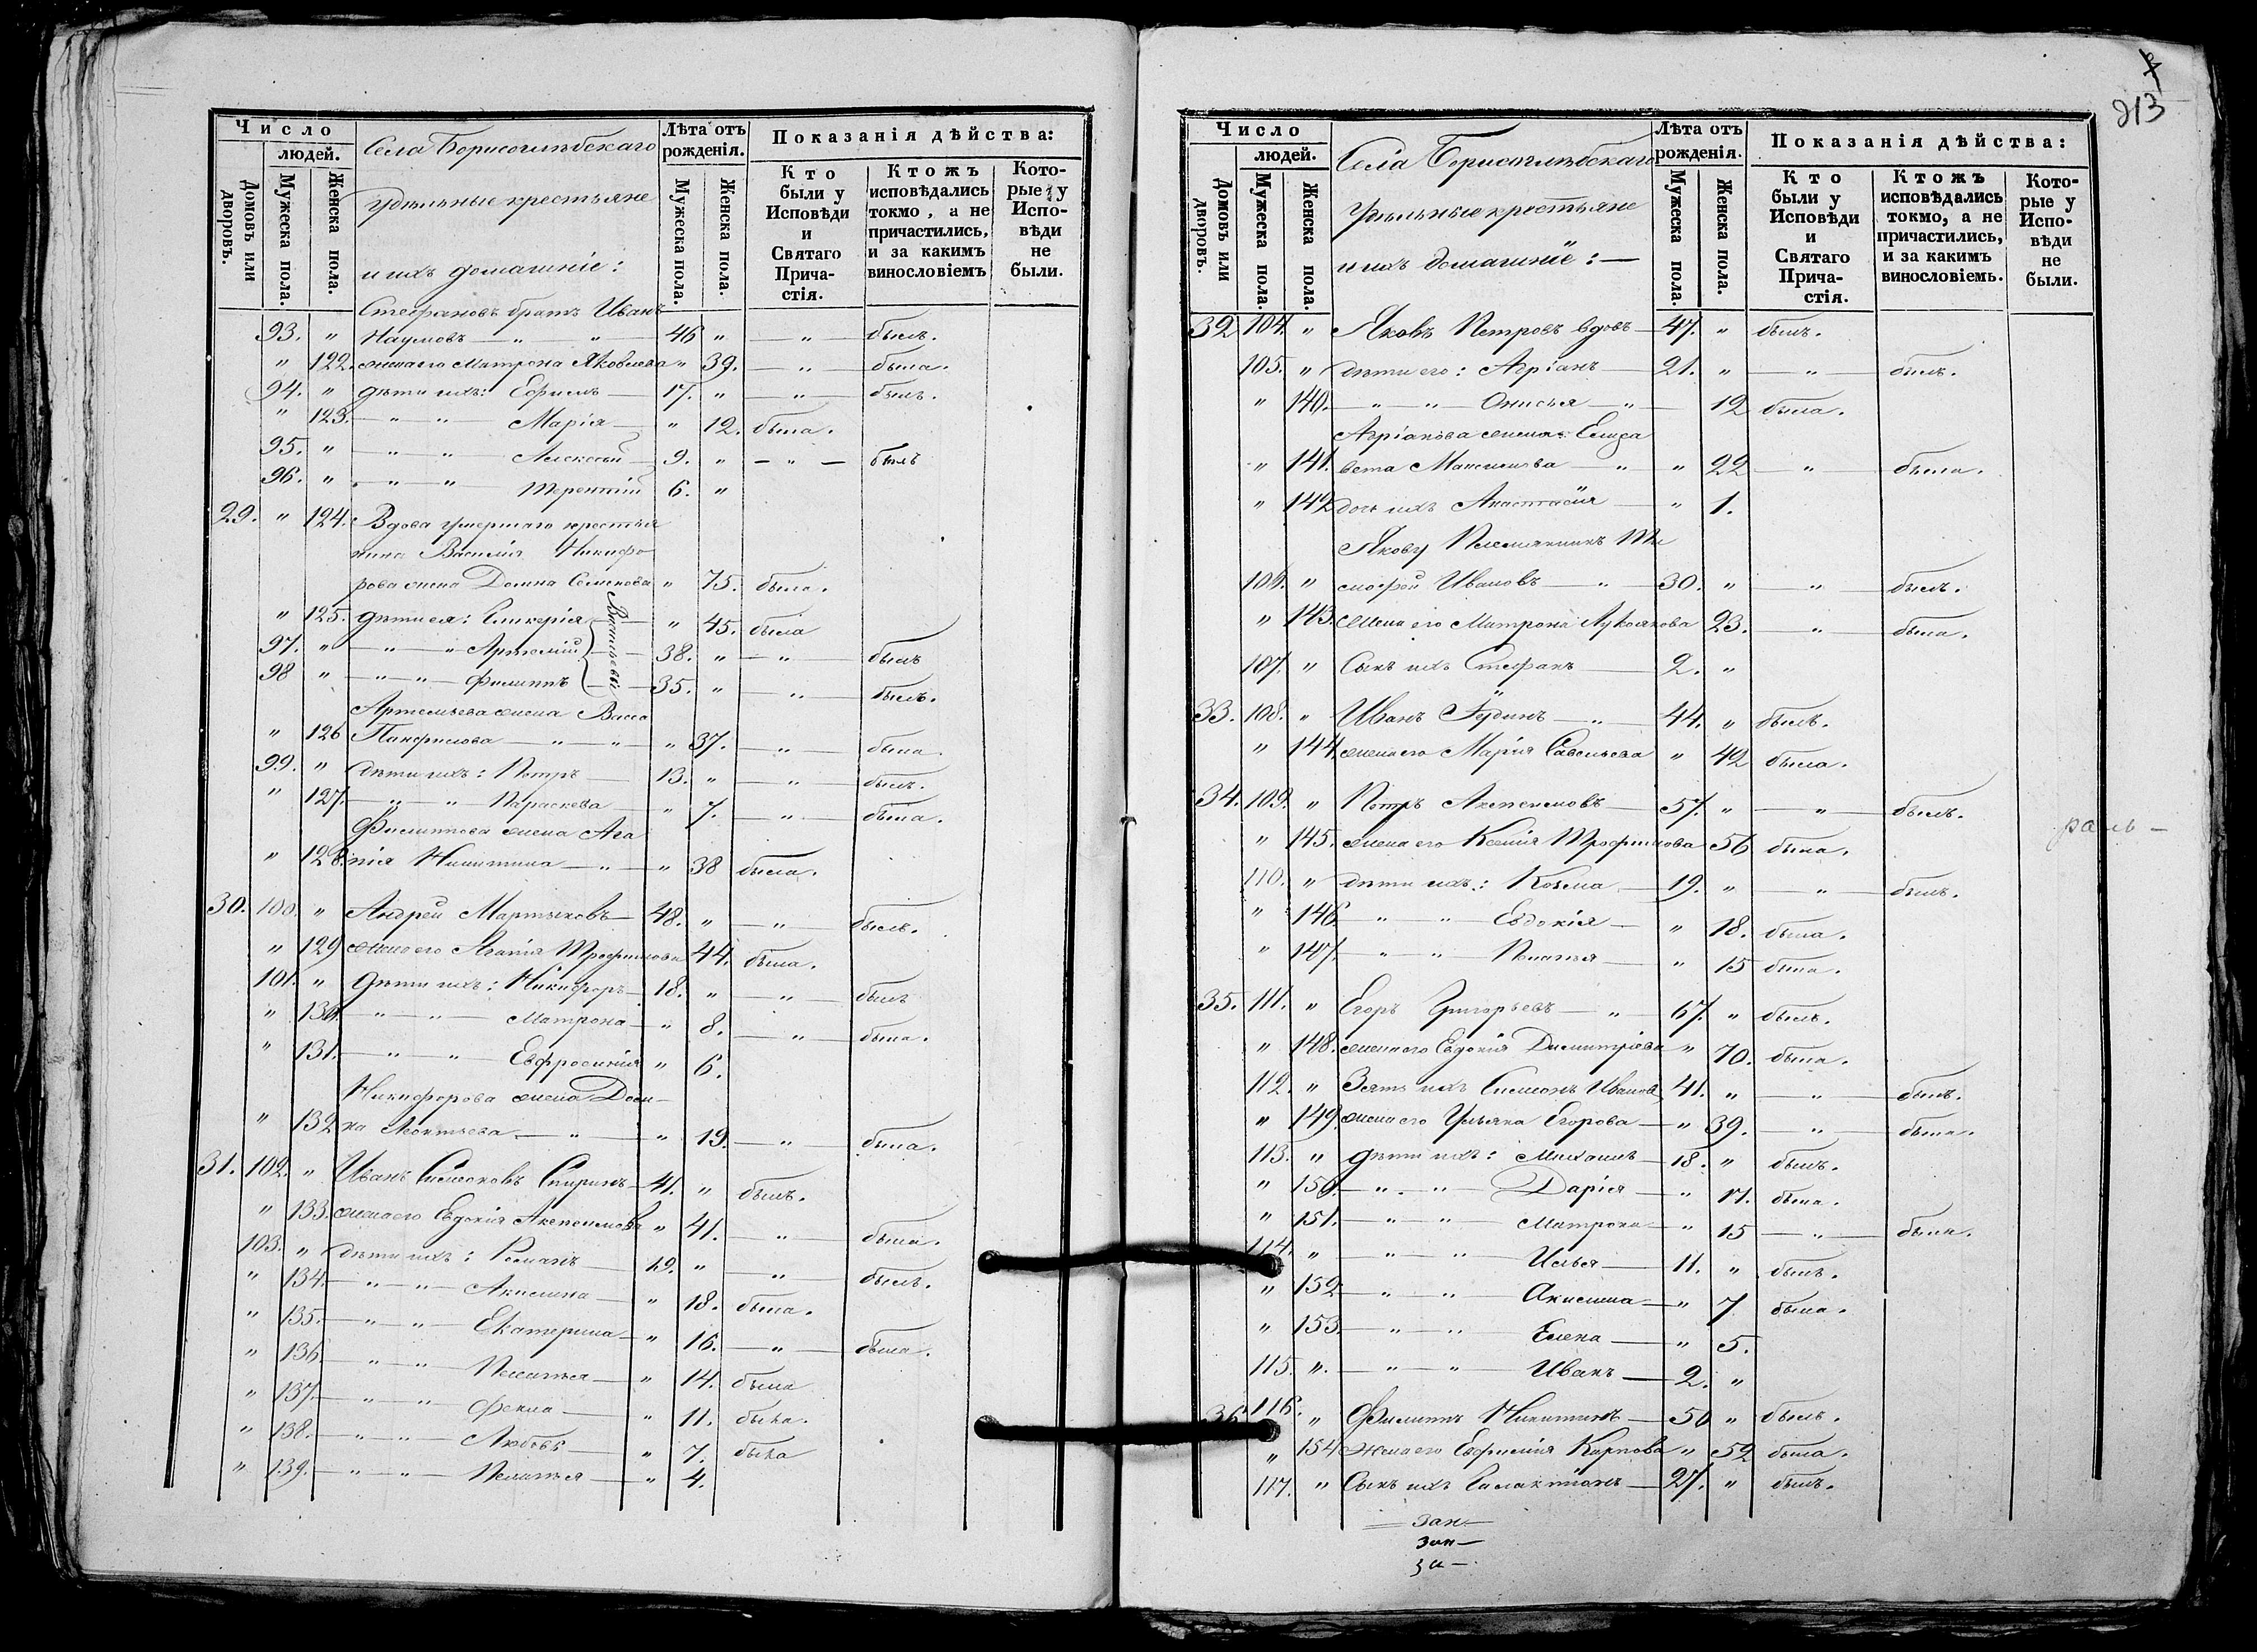 Число
людей.
Домовъ или дворовъ.
Мужеска пола.
Женска пола.
Села Борисоглѣбскаго
удѣльные крестьяне
и ихъ домашніе:
Лѣта отъ рожденія.
Мужеска пола.
Женска пола.
Показанія дѣйства:
Кто были у Исповѣди и Святаго Прича-стія.
Ктожъ исповѣдались токмо, а не причастились, и за какимъ винословіемъ
Кото-рые у Испо-вѣди не были.
Стефановъ братъ Иванъ
93. " Наумовъ — " " 46 " — " — былъ.
" 122. жена его Матрона Яковлева " 39. — " — была.
94. " дѣти ихъ: Ефимъ — 17. " — " — былъ.
" 123. — " — " — Марія — " 12. была.
95. " — " — " — Алексѣй — 9. " — " — былъ
96. " — " — " — Терентій 6. "
29. " 124. Вдова умершаго крестья
нина Василія Никифо
рова жена Домна Семенова " 75. была.
" 125. дѣти ея: Гликерія — " 45. была
Васильевы
97. " — " — " Артемій — 38. " — " — былъ
98 " — " — " — Филиппъ — 35. " — " — былъ.
Артемьева жена Васса
" 126 Панфилова — " — " — " 37. — " — была
99. " дѣти ихъ: Петръ — 13. " — " — былъ.
" 127. — " — " — Параскева — " 7. — " — была.
Филиппова жена Ага
" 128. пія Никитина — " — " 38 была.
30. 100. " Андрей Мартыновъ — 48. " — " — былъ.
" 129 жена его Агапія Трофимова 44. была.
101. " дѣти ихъ: Никифоръ — 18. " — " — былъ
" 130. — " — " — Матрона — " 8. — " — была.
" 131. — " — " — Евфросинія " 6.
Никифорова жена Дом-
" 132 на Леонтьева — " — " 19. — " — была.
31. 102. " Иванъ Симеоновъ Спиринъ — 41. " былъ.
" 133. жена его Евдокія Акепсимова " 41. — " — была.
103. " дѣти ихъ: Романъ — 19. " — " — былъ.
" 134. — " — " — Акилина — " 18. была.
" 135. — " — " — Екатерина — " 16. — " — была.
" 136 — " — " — Пелагія — " 14. была
" 137. — " — " — Фекла — " 11. была.
" 138. — " — " — Любовь — " 7. была
" 139. — " — " — Пелагія — " 4.
213
Число
людей.
Домовъ или дворовъ.
Мужеска пола.
Женска пола.
Села Борисоглѣбскаго
Удѣльные крестьяне
и ихъ домашніе: —
Лѣта отъ рожденія.
Мужеска пола.
Женска пола.
Показанія дѣйства:
Кто были у Исповѣди и Святаго Прича-стія.
Ктожъ исповѣдались токмо, а не причастились, и за какимъ винословіемъ.
Кото-рые у Испо-вѣди не были.
32 104. " Яковъ Петровъ вдовъ — 47. " былъ.
105. " дѣти его: Адріанъ — 21. " — " — былъ.
" 140. — " — " — Онисья — " — 12 была.
Адріанова жена Елиса
" 141. вета Максимова — " " 22 — " — была.
" 142 дочь ихъ Анастасія — " 1.
Якову Племянникъ Ти
106. " моѳей Ивановъ — " — 30. " — " — былъ.
" 143. жена его Матрона Лукоянова 23. — " — была.
107. " Сынъ ихъ Стефанъ — 2. "
33. 108. " Иванъ Іудинъ — " — 44. " былъ.
" 144. жена его Марія Савельева " 42 была.
34. 109. " Петръ Акепсимовъ — 57. " — " — былъ.
" 145. жена его Ксенія Трофимова 56 была.
110. " дѣти ихъ: Козма — 19. " — " — былъ.
" 146 — " — " — Евдокія — " 18. была.
" 147. — " — " — Пелагья — " 15 была.
35. 111. " Егоръ Григорьевъ — " — 67. " былъ.
" 148. жена его Евдокія Димитріева " 70. была.
112. " Зять ихъ Симеонъ Ивановъ 41. " — " — былъ.
" 149. жена его Ульяна Егорова — " 39. — " — была.
113. " дѣти ихъ: Михаилъ — 18. " былъ.
" 150. — " — " — Дарія — " 17. была.
" 151. — " — " — Матрона — " 15 — " — была.
114. " — " — " — Илья — 11. " былъ.
" 152 — " — " — Акилина — " 7 была.
" 153. — " — " — Елена — " 5.
115. " — " — " — Иванъ — 2. "
36. 116. " Филиппъ Никитинъ — 50 " былъ.
" 154 жена его Евфимія Карпова " 52 была.
117. " Сынъ ихъ Галактіонъ — 27. " былъ.
зан —
зан —
за —